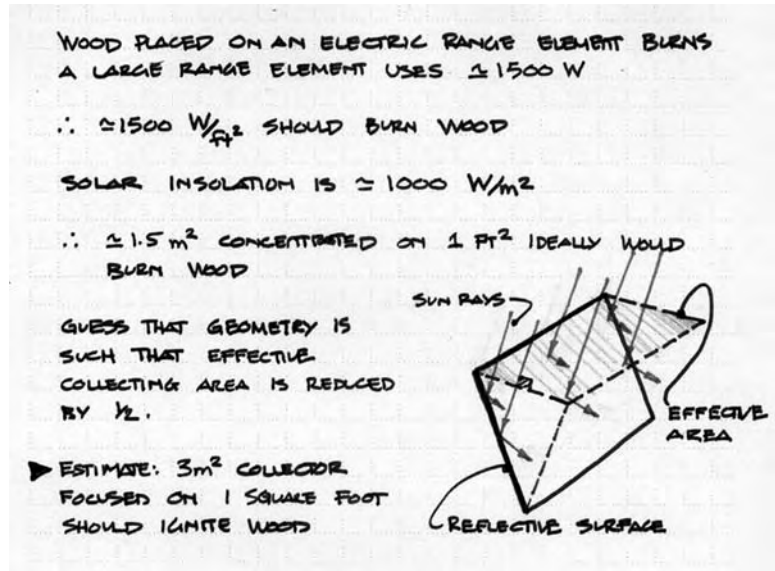 WOOD PLACED ON AN ELECTRIC RANGE ELEMENT BURNS
A LARGE RANGE ELEMENT USES ≃ 1500 W
∴ ≃1500 W/ft² SHOULD BURN WOOD
SOLAR INSOLATION IS ≃ 1000 W/m²
∴ ≃ 1.5 m² CONCENTRATED ON 1 FT² IDEALLY WOULD
BURN WOOD
SUN RAYS
GUESS THAT GEOMETRY IS
SUCH THAT EFFECTIVE
COLLECTING AREA IS REDUCED
BY ½.
EFFECTIVE
AREA
▶ ESTIMATE: 3m² COLLECTOR
FOCUSED ON 1 SQUARE FOOT
SHOULD IGNITE WOOD
REFLECTIVE SURFACE